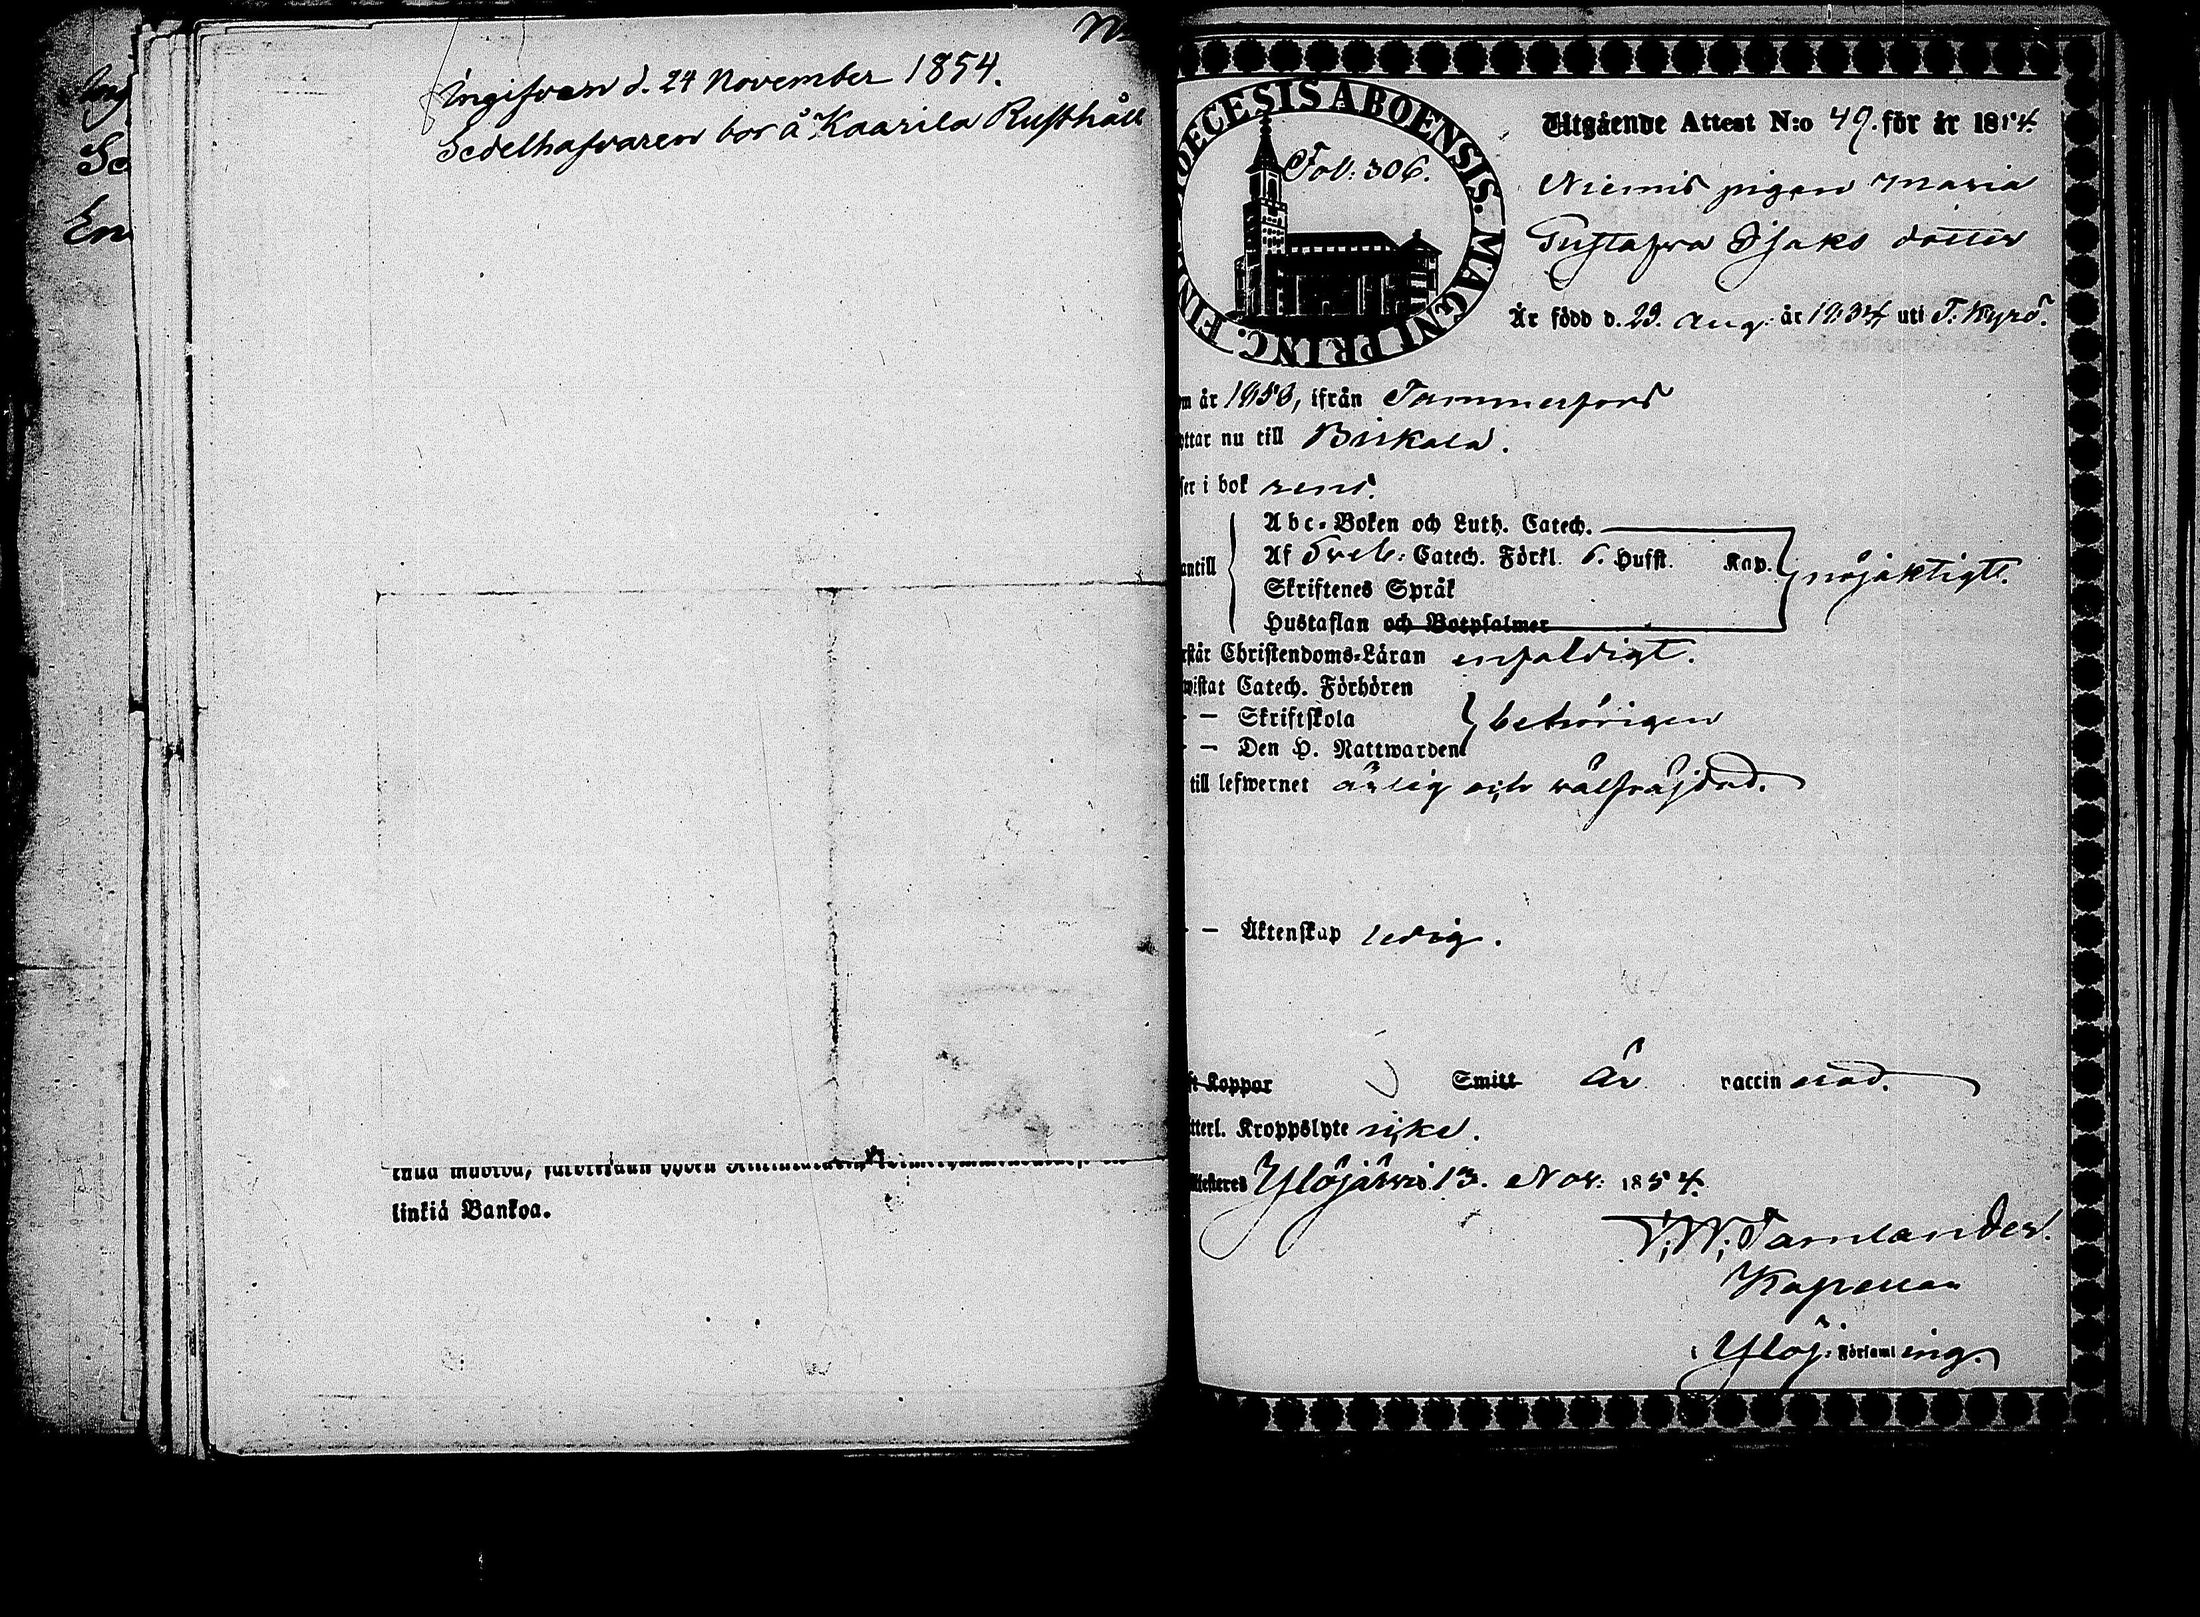 Ingifven d. 24 November 1854.
Sedelhafvaren bor å Kaarila Rusthåll
linkiä Bankoa.
DECESIS ABOENSIS. MAGNI PRINC. FIN
Fol: 306.
Utgående Attest N:o 49. för år 1854.
Niemis pigan Maria
Gustafva Isaks dotter
Är född d. 29. Aug: år 1834 uti T. Kyrö.
år 1850, ifrån Tammerfors
ttar nu till Birkala.
ser i bok rent.
antill
Abc-Boken och Luth. Catech.
Af Sveb: Catech. Förkl. 5. Hufst. Kap.
Skriftenes Språk
Hustaflan och Botpsalmer
nöjaktigt.
rstår Christendoms-Läran enfaldigt.
wistat Catech. Förhören
- - Skriftskola
- - Den H. Nattwarden
behörigen
till lefwernet ärlig och välfräjdad.
- - Äktenskap ledig.
ft Koppor Smitt är vaccinerad.
tterl. Kroppslyte icke.
Attesteres Ylöjärvi 13. Nov: 1854.
Kapellan
i Ylöj: Församling.